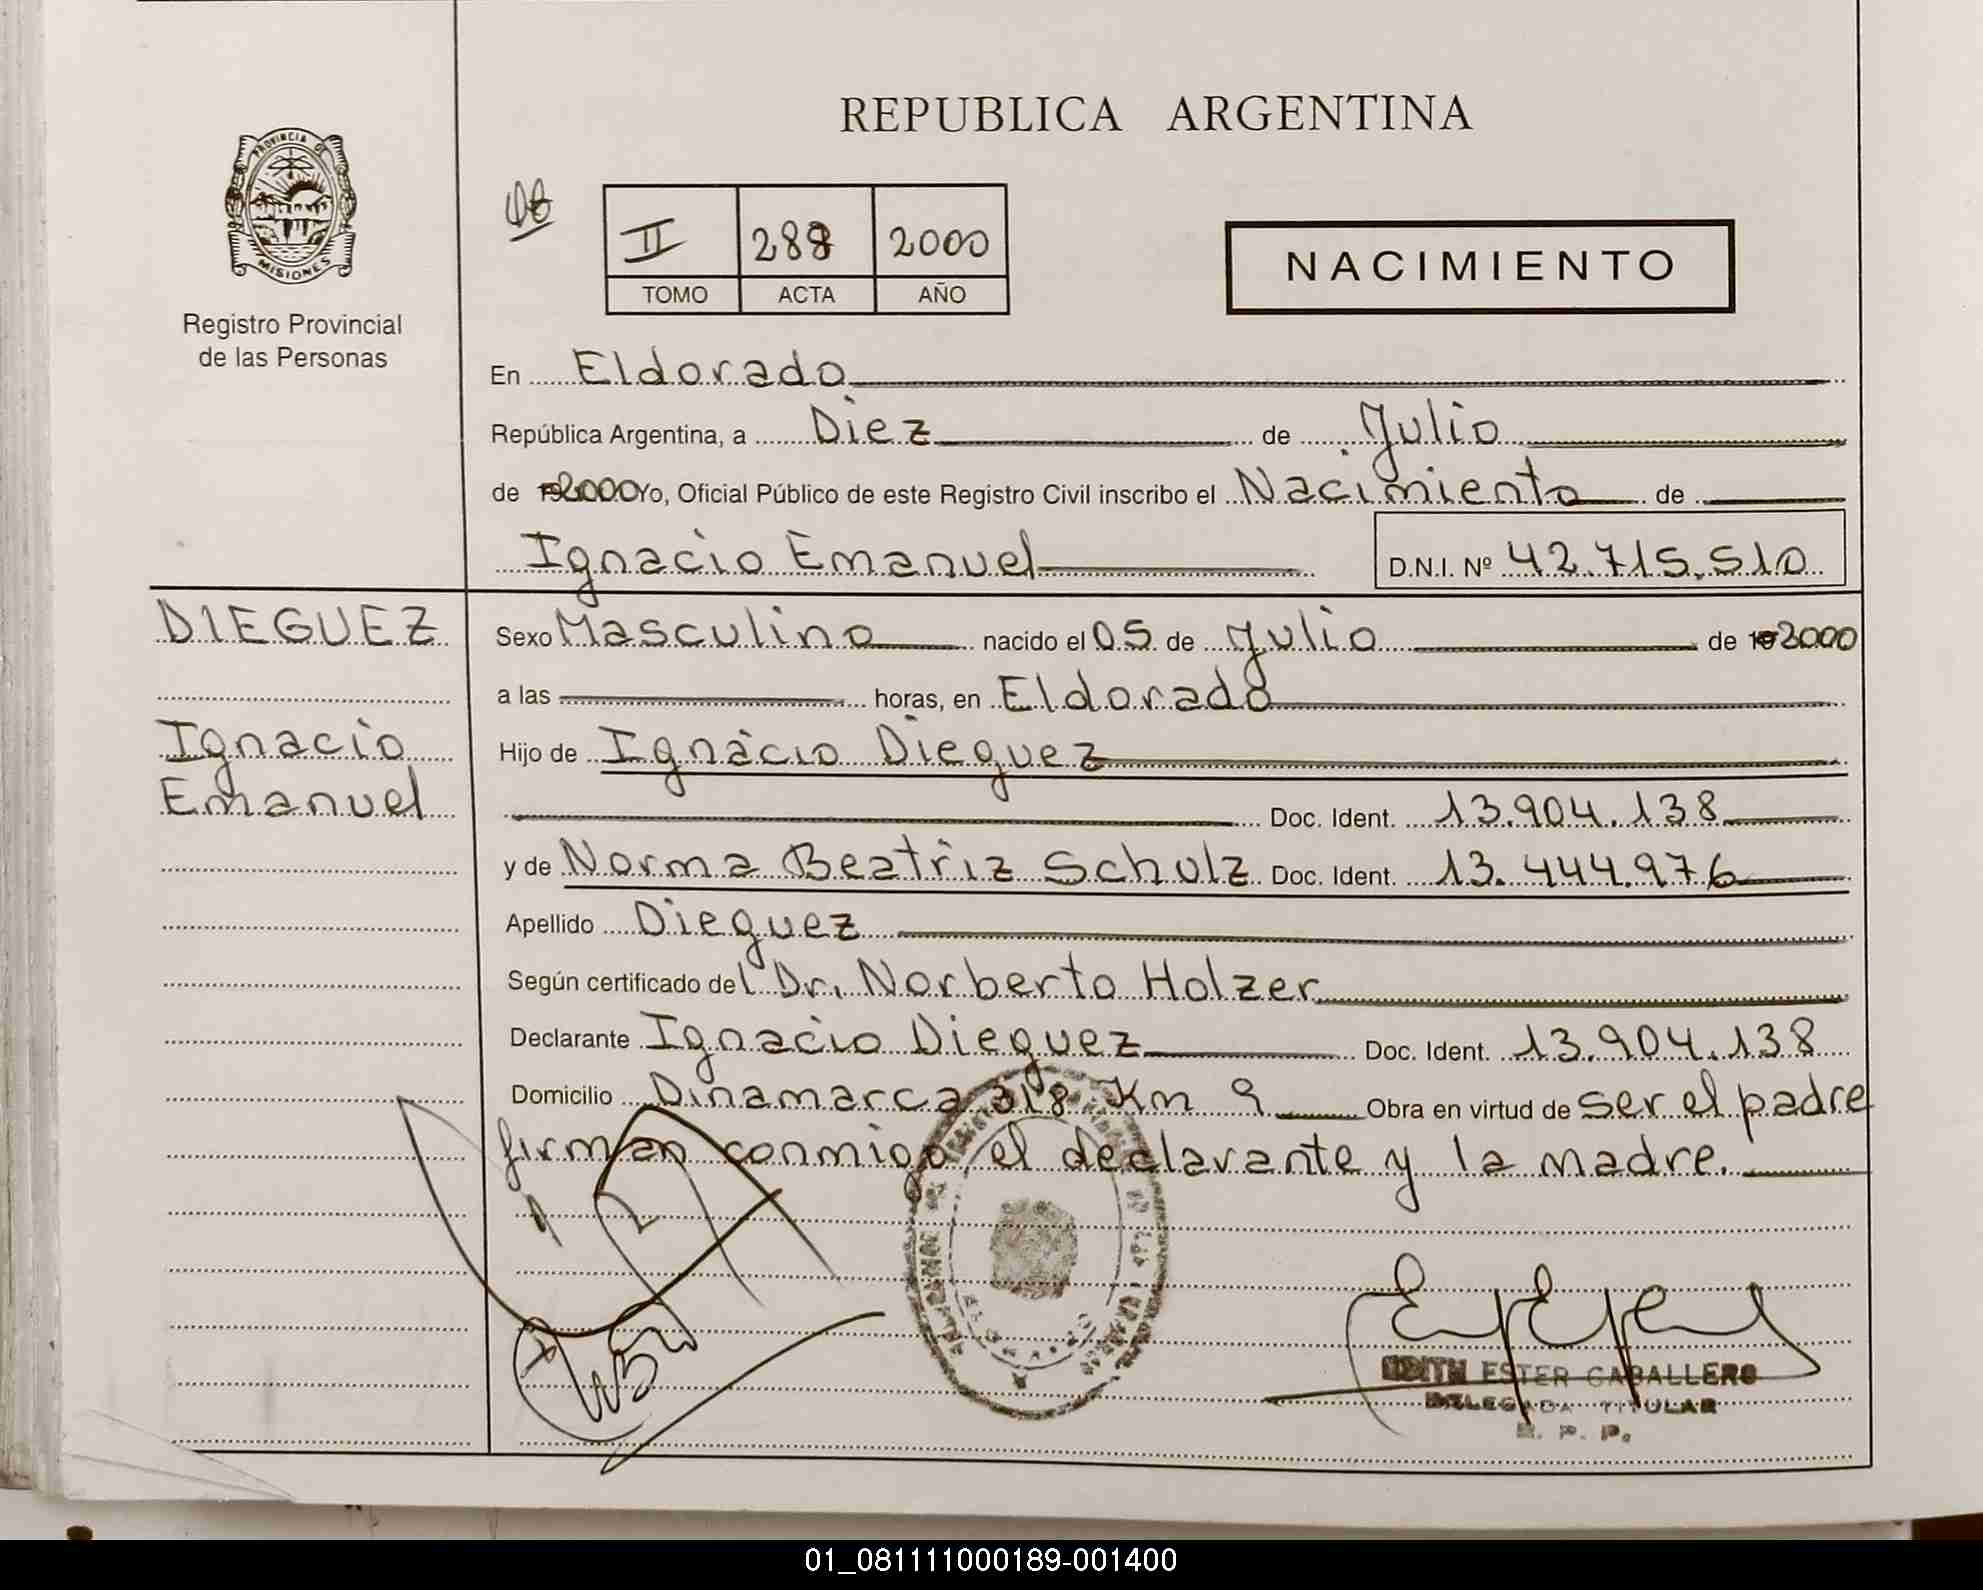 REPUBLICA ARGENTINA
PROVINCIA DE
MISIONES
Registro Provincial
de las Personas
II 288 2000
TOMO ACTA AÑO
NACIMIENTO
En Eldorado
República Argentina, a Diez de Julio
de 192000 Yo, Oficial Público de este Registro Civil inscribo el Nacimiento de
Ignacio Emanuel D.N.I. Nº 42.715.510
DIEGUEZ
Ignacio
Emanuel
Sexo Masculino nacido el 05 de Julio de 192000
a las horas, en Eldorado
Hijo de Ignacio Dieguez
Doc. Ident. 13.904.138
y de Norma Beatriz Schulz Doc. Ident. 13.444.976
Apellido Dieguez
Según certificado del Dr. Norberto Holzer
Declarante Ignacio Dieguez Doc. Ident. 13.904.138
Domicilio Dinamarca 318 Km 9 Obra en virtud de ser el padre
firman conmigo, el declarante y la madre.
EDITH ESTER CABALLERO
DELEGADA TITULAR
R. P. P.
01_081111000189-001400